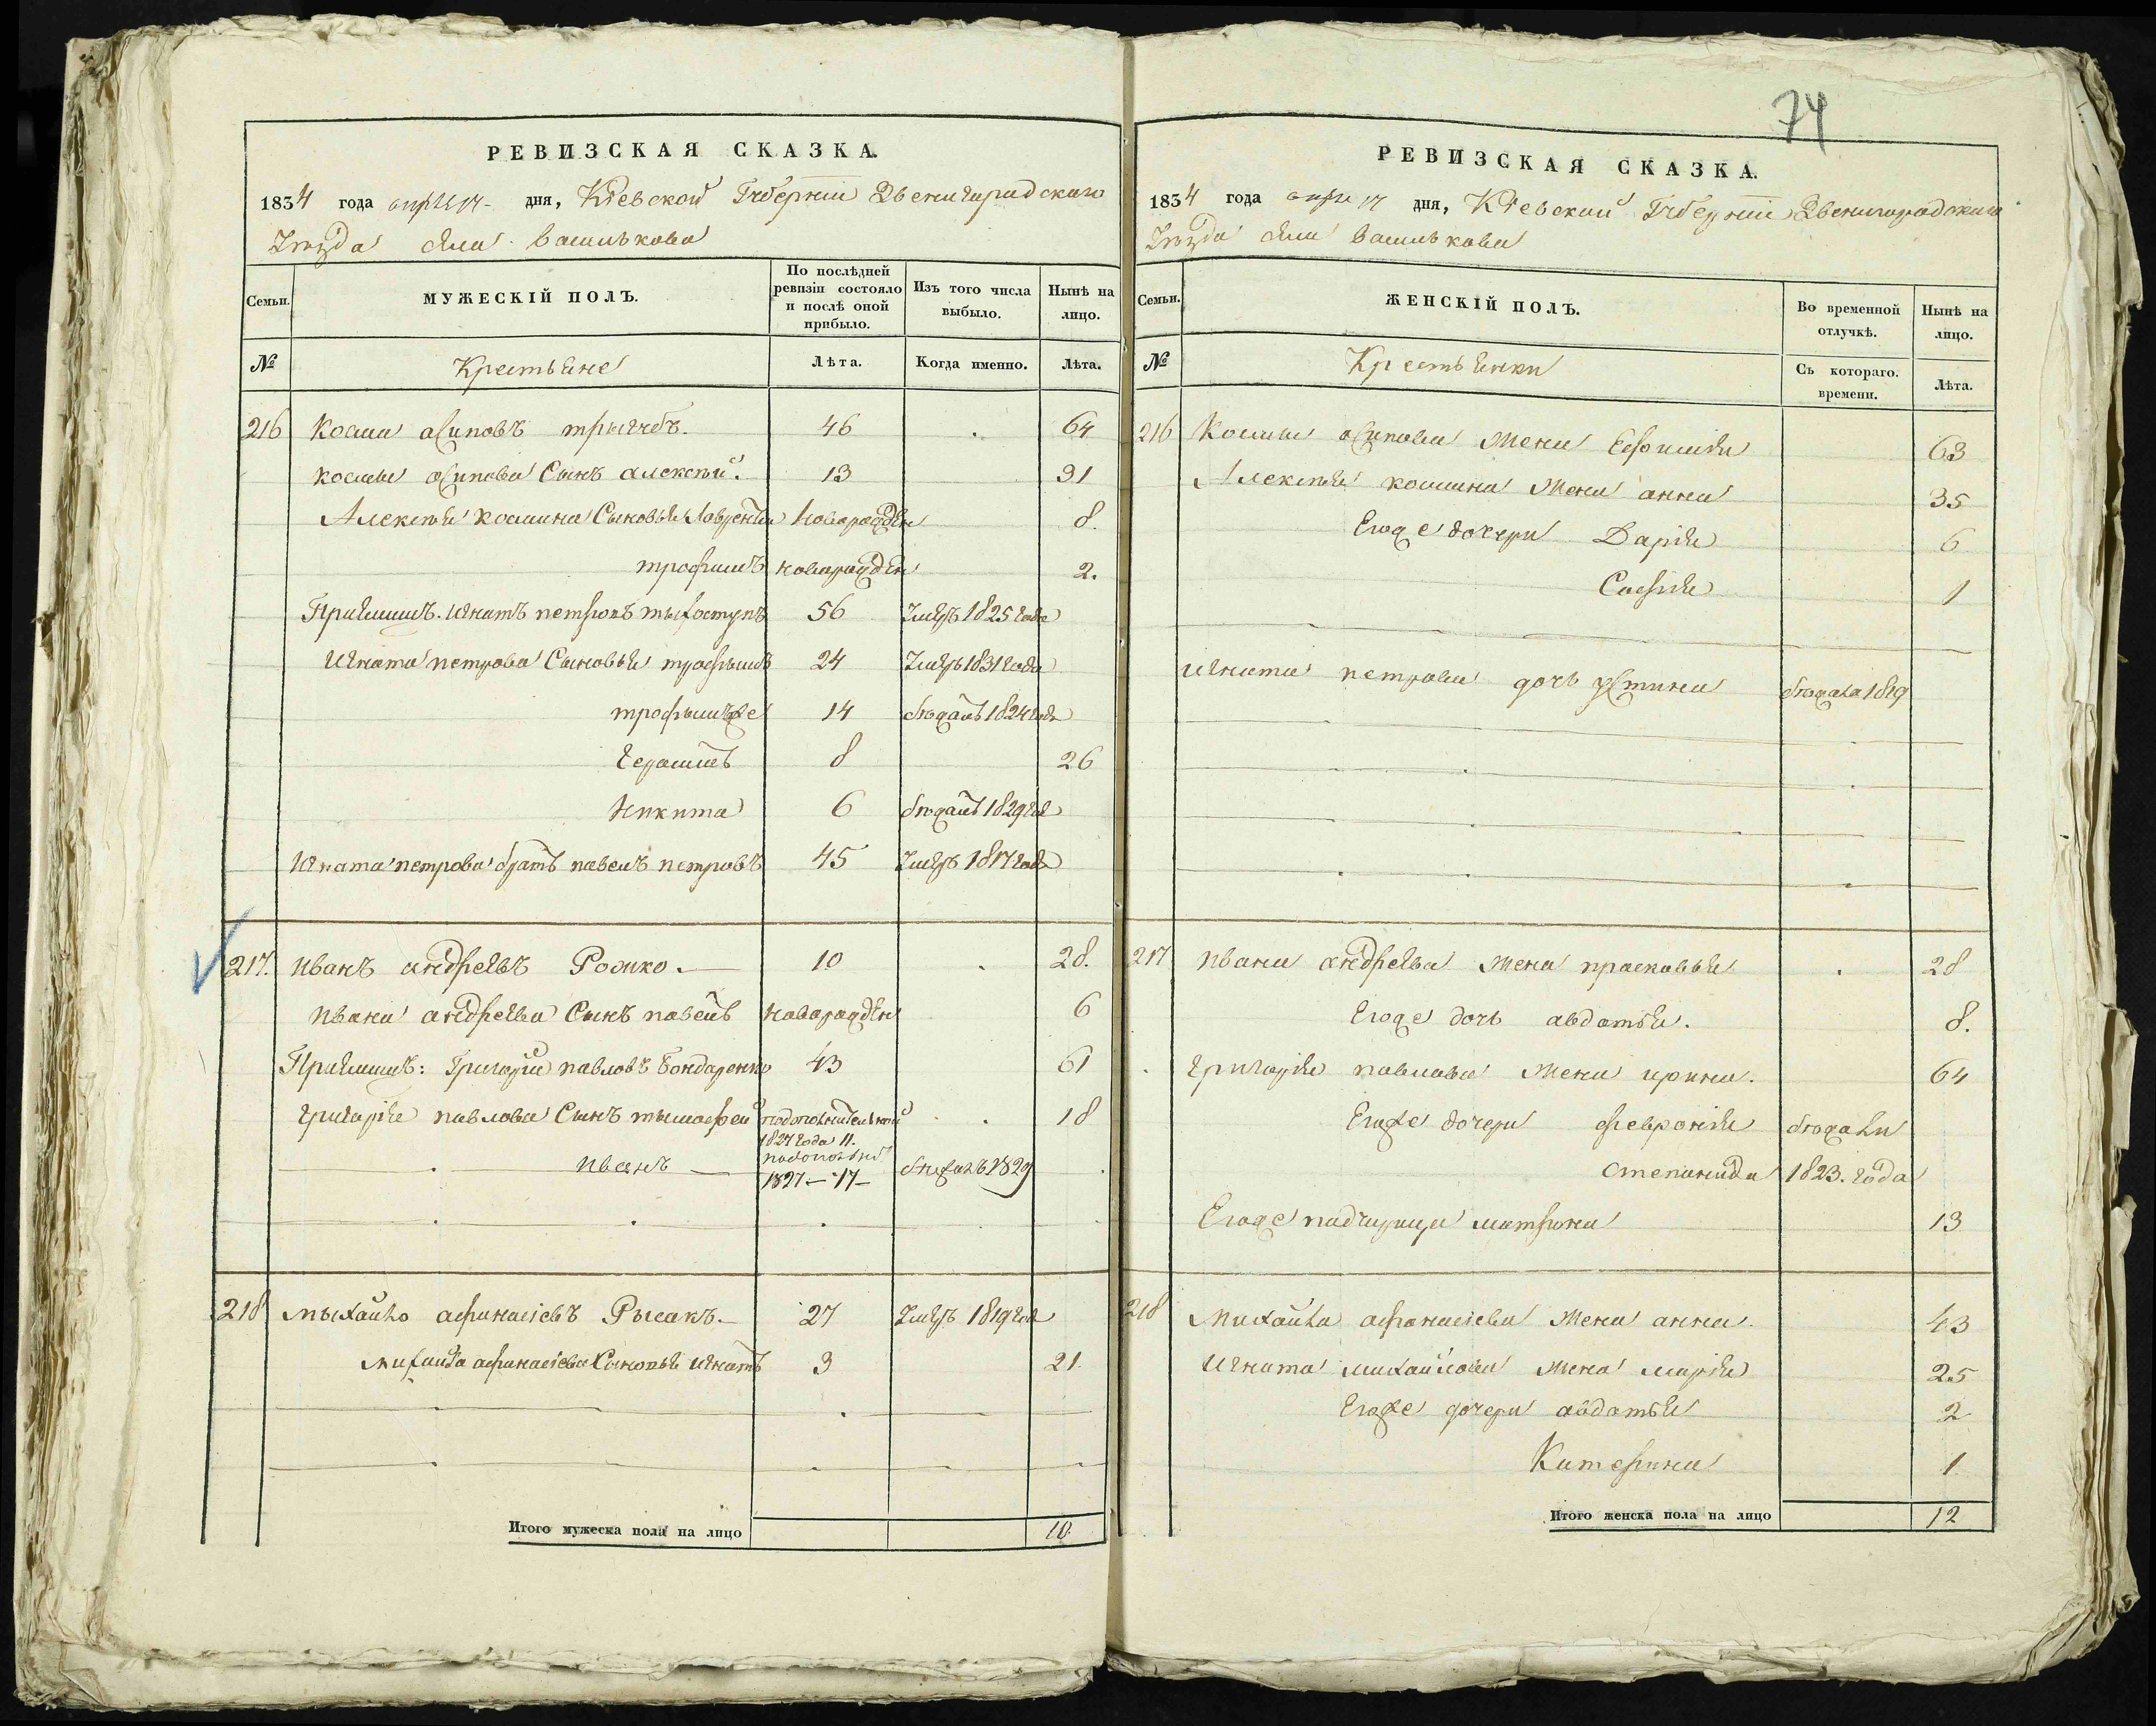 74
РЕВИЗСКАЯ СКАЗКА.
1834 года апреля 17 дня, Кіевской Губерніи Звенигородскаго
Уезда села Васильkова
Семьи. МУЖЕСКІЙ ПОЛЪ. По послѣдней ревизіи состояло и послѣ оной прибыло. Изъ того числа выбыло. Нынѣ на лицо.
№ Крестьяне Лѣта. Когда именно. Лѣта.
216 Косма осиповъ 46 64
космы осипова Сынъ алексѣй 13 31
Алексѣя космина Сыновья Лаврентій новорожден 8.
трофимъ новорожден 2.
Приимишъ. игнатъ петровъ 56 Умеръ 1825 года
игната петрова Сыновья трофымъ 24 Умеръ 1831 года
трофымъже 14 бежалъ 1824 года
герасимъ 8 26
Никита 6 бежалъ 1829 го
игната петрова братъ павелъ петровъ 45 Умеръ 1817 года
217. Иванъ андреевъ 10 28.
ивана андреева Сынъ павелъ новорожден 6
Приимишъ: Григорій павловъ Бондаренко 43 61
григорія павлова Сынъ тымофей 1827 года 11. 18
иванъ 1827 — 17 — бежалъ 1829
218 Мыхайло афанасіевъ Рысакъ. 27 Умеръ 1819 го
михайла афанасіева Сыновья игнатъ 3 21.
Итого мужеска пола на лицо 10
РЕВИЗСКАЯ СКАЗКА.
1834 года апре 17 дня, Кіевской Губерніи Звенигородскаго
Уезда села Василькова
Семьи. ЖЕНСКІЙ ПОЛЪ. Во временной отлучкѣ. Нынѣ на лицо.
№ Крестьянки Съ котораго. времени. Лѣта.
216 Космы осипова жена Ефимія 63
Алексѣя космина жена анна 35
Егоже дочери Дарія 6
Софія 1
игната петрова дочь устина бежала 1819
217 ивана андреева жена прасковья 28
Егоже дочь авдотья. 8.
григорія павлова жена ирина. 64
Егоже дочери февронія бежали
степанида 1823. года
Егоже падчирица матрона 13
218 Михайла афанасіева жена анна. 43
Игната михайлова жена марія 25
Егоже дочери авдотья 2
Катерина 1
Итого женска пола на лицо 12